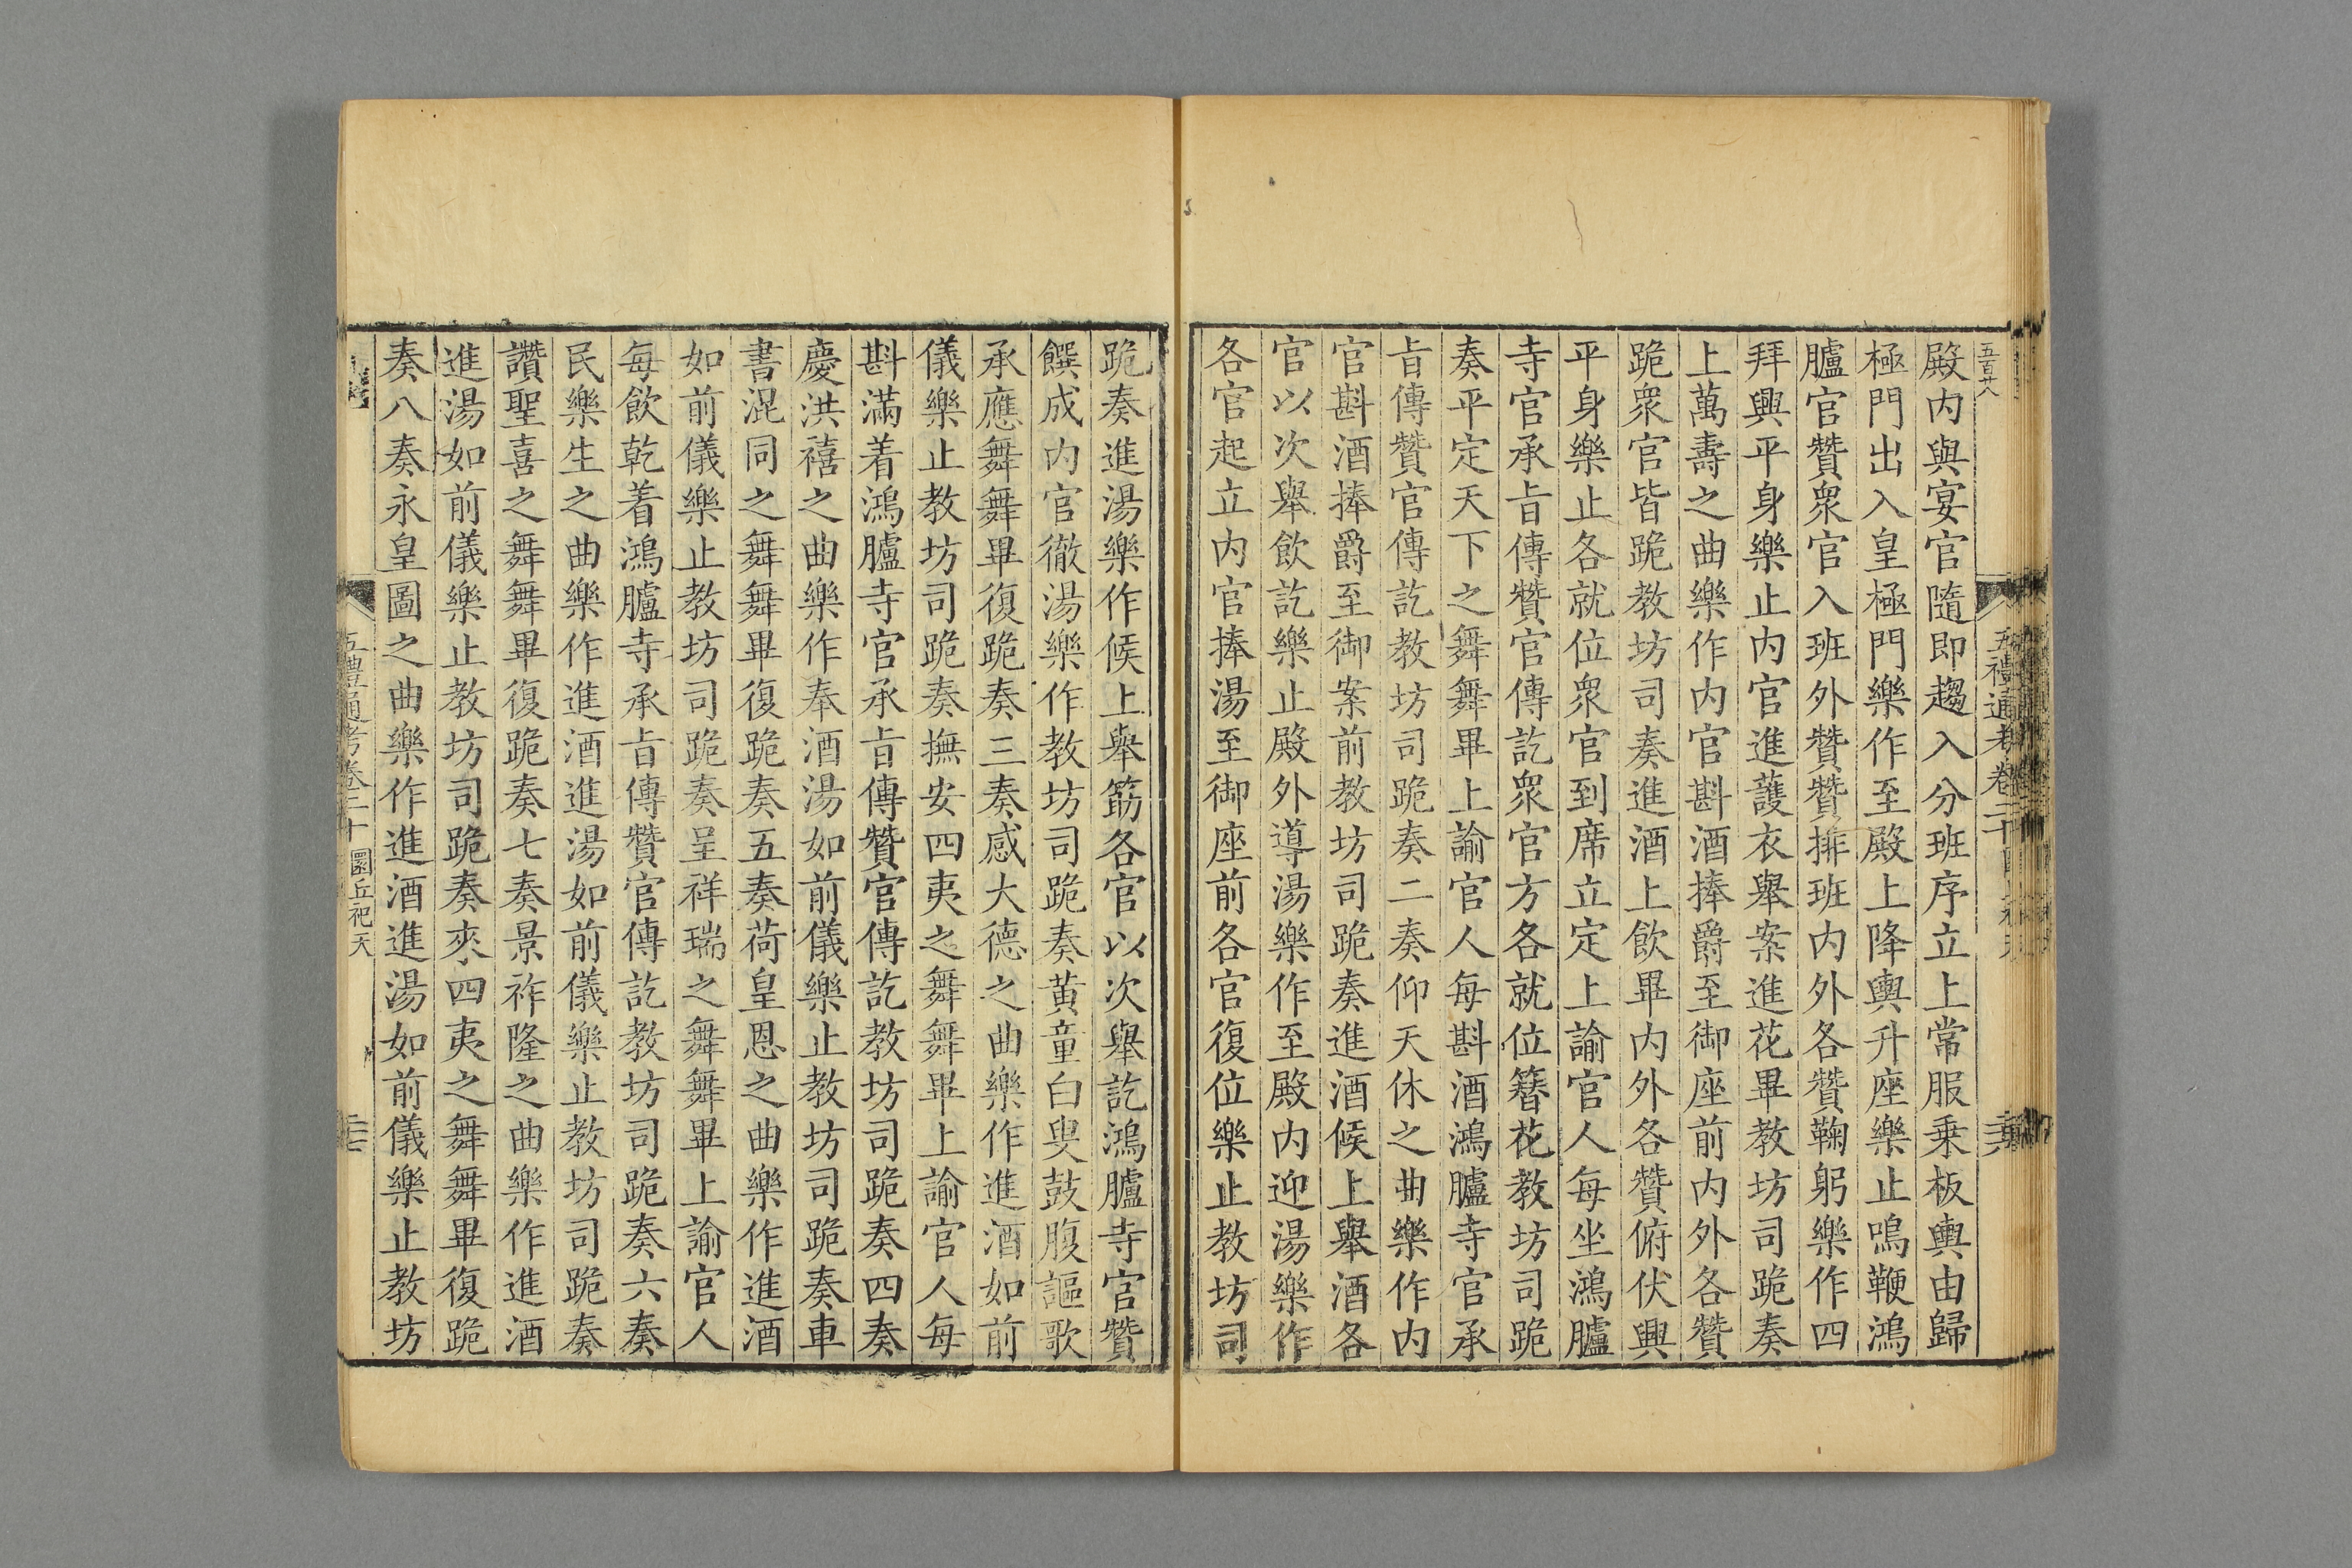 五百廿八
五禮通考卷二十
殿内與宴官隨即趨入分班序立上常服乗板輿由歸
極門出入皇極門樂作至殿上降輿升座樂止鳴鞭鴻
臚官贊衆官入班外贊贊排班内外各贊鞠躬樂作四
拜興平身樂止内官進護衣舉案進花畢教坊司跪奏
上萬壽之曲樂作内官斟酒捧爵至御座前内外各贊
跪衆官皆跪教坊司奏進酒上飲畢内外各贊俯伏興
平身樂止各就位衆官到席立定上諭官人每坐鴻臚
寺官承㫖傳贊官傳訖衆官方各就位簪花教坊司跪
奏平定天下之舞舞畢上諭官人每斟酒鴻臚寺官承
㫖傳贊官傳訖教坊司跪奏二奏仰天休之曲樂作内
官斟酒捧爵至御案前教坊司跪奏進酒候上舉酒各
官以次舉飲訖樂止殿外導湯樂作至殿内迎湯樂作
各官起立内官捧湯至御座前各官復位樂止教坊司
跪奏進湯樂作候上舉筯各官以次舉訖鴻臚寺官贊
饌成内官徹湯樂作教坊司跪奏黄童白叟鼓腹謳歌
承應舞舞畢復跪奏三奏感大德之曲樂作進酒如前
儀樂止教坊司跪奏撫安四夷之舞舞畢上諭官人每
斟滿着鴻臚寺官承㫖傳贊官傳訖教坊司跪奏四奏
慶洪禧之曲樂作奉酒湯如前儀樂止教坊司跪奏車
書混同之舞舞畢復跪奏五奏荷皇恩之曲樂作進酒
如前儀樂止教坊司跪奏呈祥瑞之舞舞畢上諭官人
每飲乾着鴻臚寺承㫖傳贊官傳訖教坊司跪奏六奏
民樂生之曲樂作進酒進湯如前儀樂止教坊司跪奏
讚聖喜之舞舞畢復跪奏七奏景祚隆之曲樂作進酒
進湯如前儀樂止教坊司跪奏來四夷之舞舞畢復跪
奏八奏永皇圖之曲樂作進酒進湯如前儀樂止教坊
五禮通考卷二十 圜丘祀天